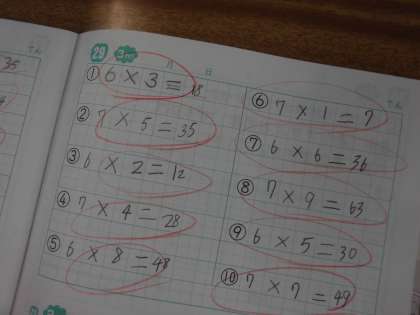 29
① 6 × 3 = 18
② 7 × 5 = 35
③ 6 × 2 = 12
④ 7 × 4 = 28
⑤ 6 × 8 = 48
⑥ 7 × 1 = 7
⑦ 6 × 6 = 36
⑧ 7 × 9 = 63
⑨ 6 × 5 = 30
⑩ 7 × 7 = 49
てん
35